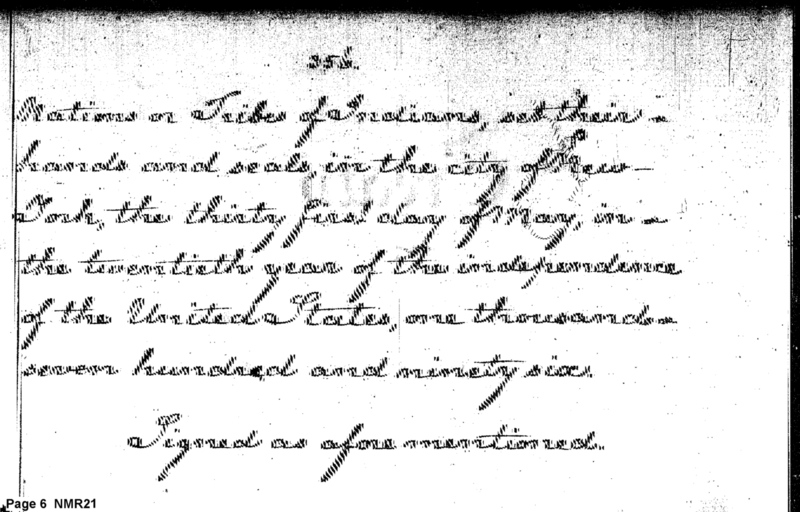 358.
Nations or Tribes of Indians, set their
hands and seals, in the city of New
York, the thirty first day of May, in
the twentieth year of the independence
of the United States, one thousand
seven hundred and ninety six.
Signed as afore mentioned.
Page 6 NMR21